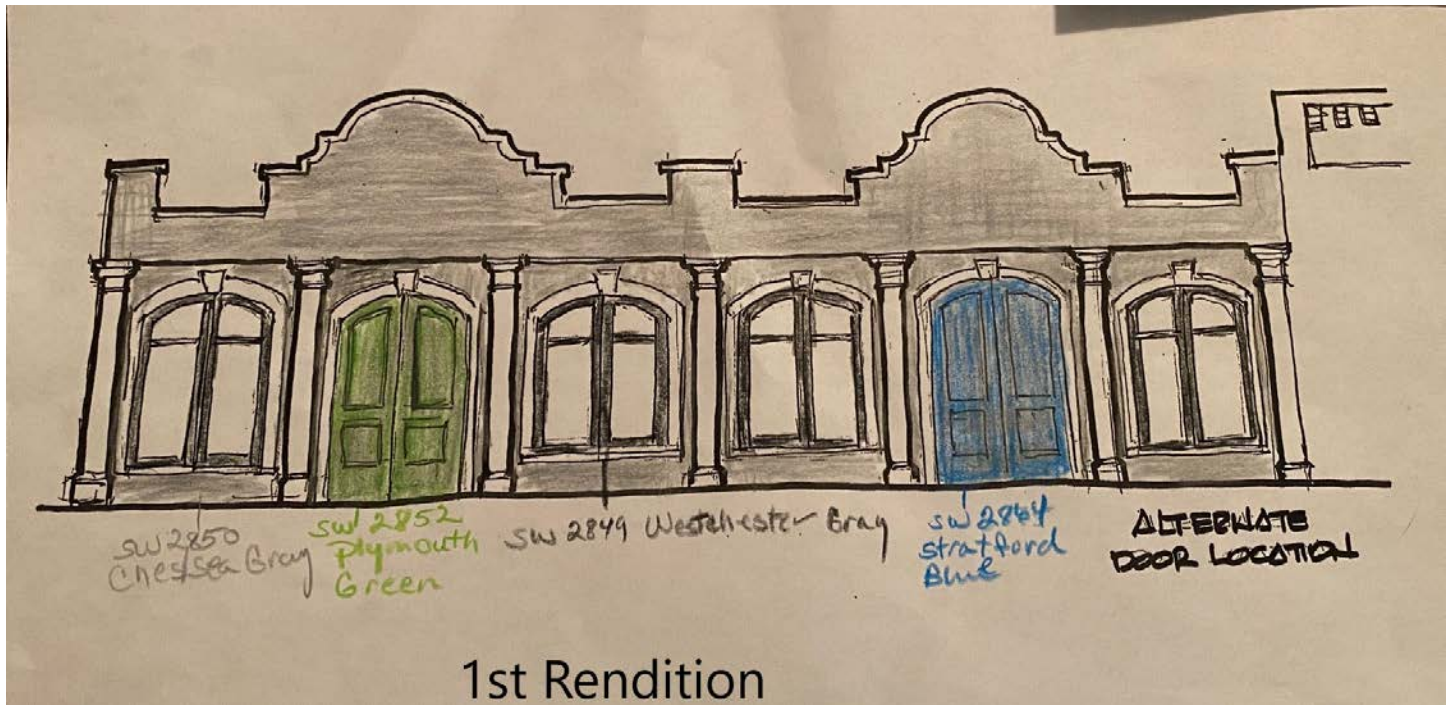 SW 2850
Chessea Gray
SW 2852
Plymouth
Green
SW 2849 Westchester Gray
SW 2864
Stratford
Blue
ALTERNATE
DOOR LOCATION
1st Rendition